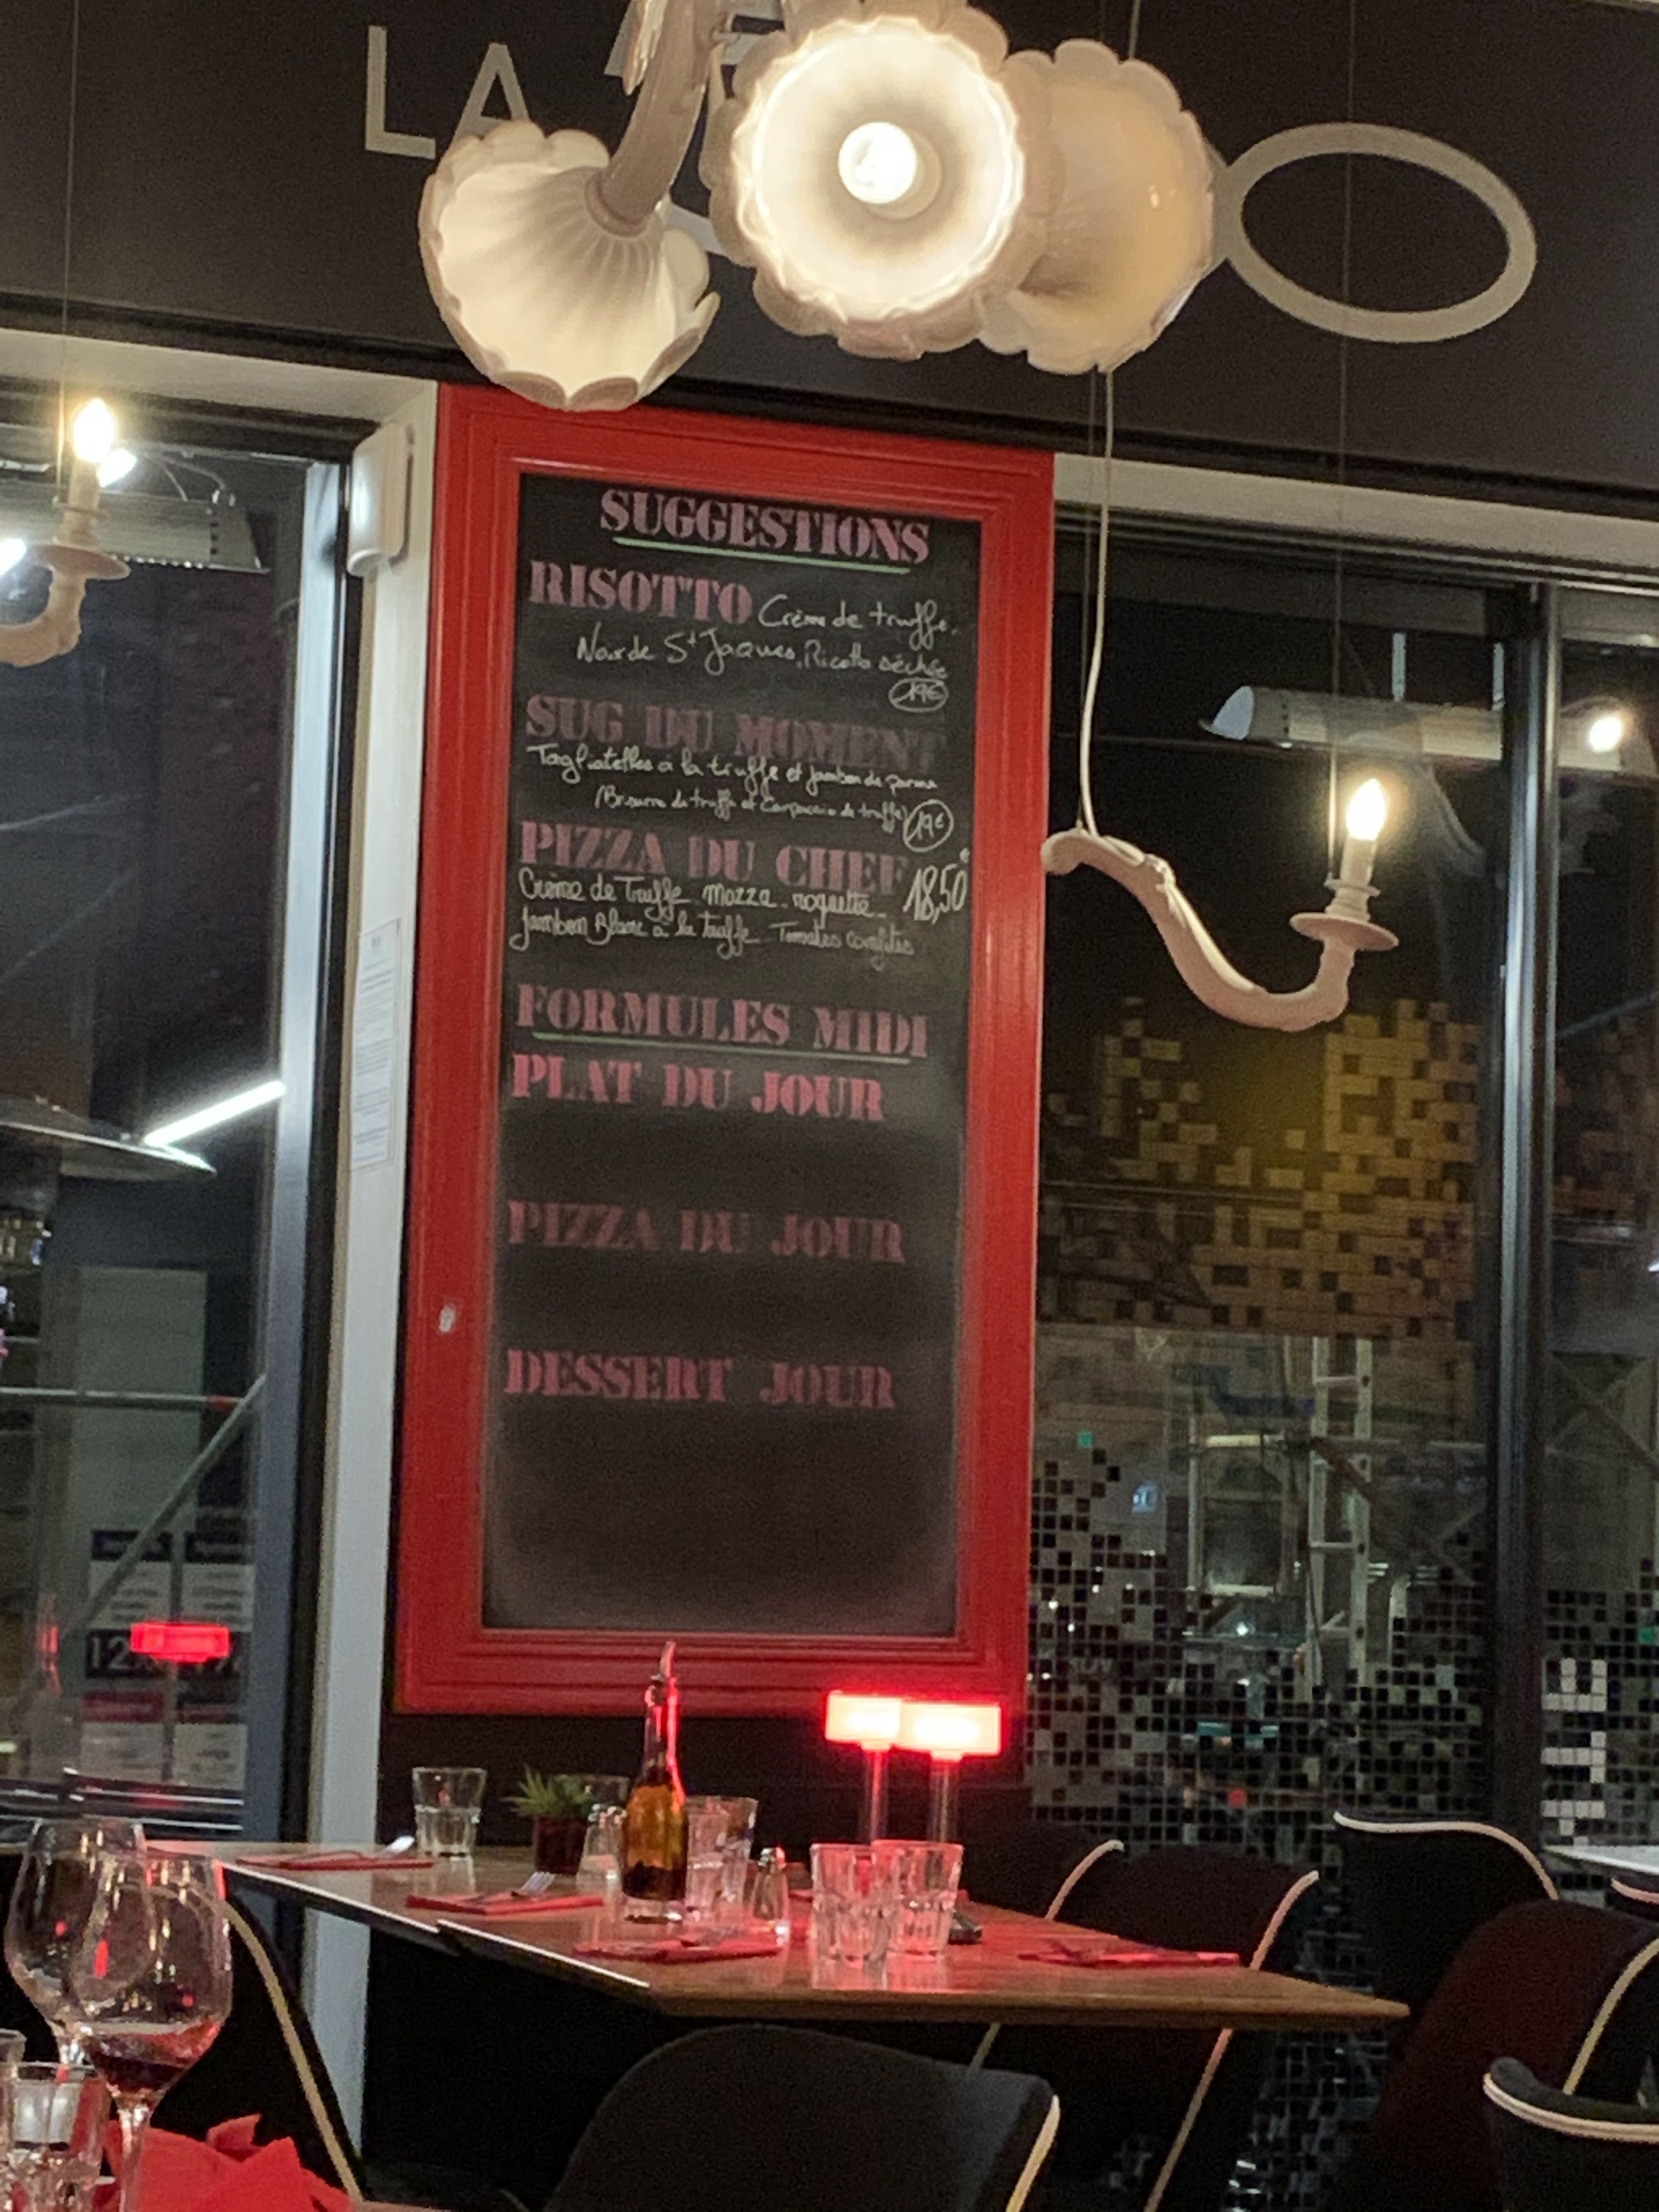 LA
O
SUGGESTIONS
RISOTTO Crème de truffe.
Noix de St Jaques, Ricotta séchée
19€
SUG DU MOMENT
Tagliatelles à la truffe et jambon de parme
(Brisure de truffe et Carpaccio de truffe) 19€
PIZZA DU CHEF
Crème de Truffe - mozza - roquette - 18,50€
Jambon Blanc à la truffe - Tomates confites
FORMULES MIDI
PLAT DU JOUR
PIZZA DU JOUR
DESSERT JOUR